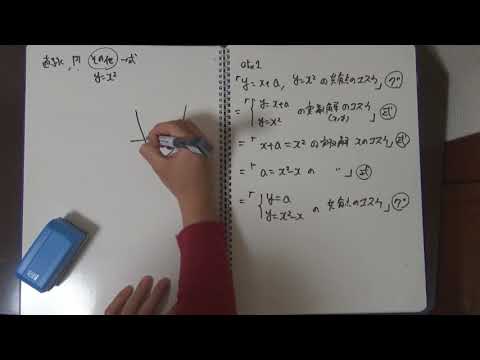 直線, 円 その他 一式
y=x²
ex1
「y=x+a, y=x² の共有点のコスウ」グ
=「{y=x+a
y=x² の実数解のコスウ」式
(x,y)
=「x+a=x² の実数解 xのコスウ」式
=「a=x²-x の 〃」式
=「{y=a
y=x²-x の 共有点のコスウ」グ